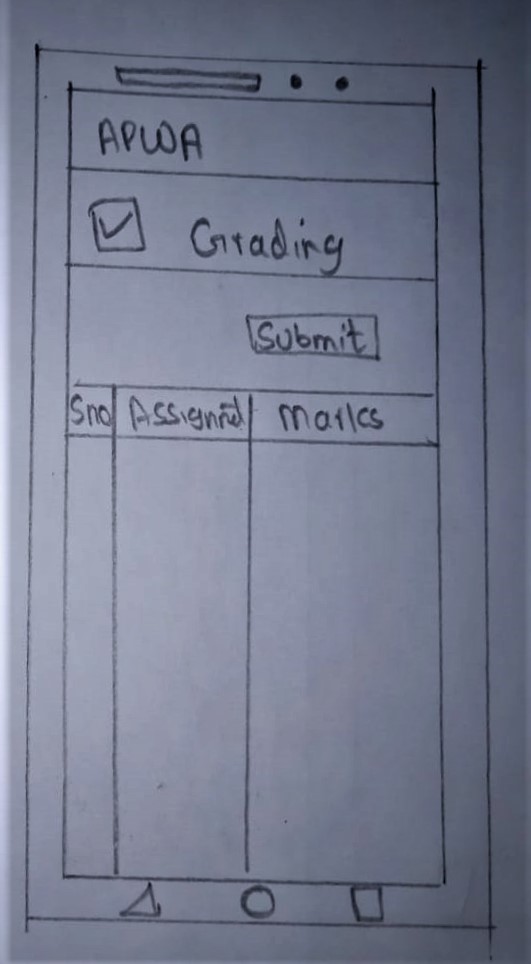 APWA
Grading
Submit
Sno Assignd Marks